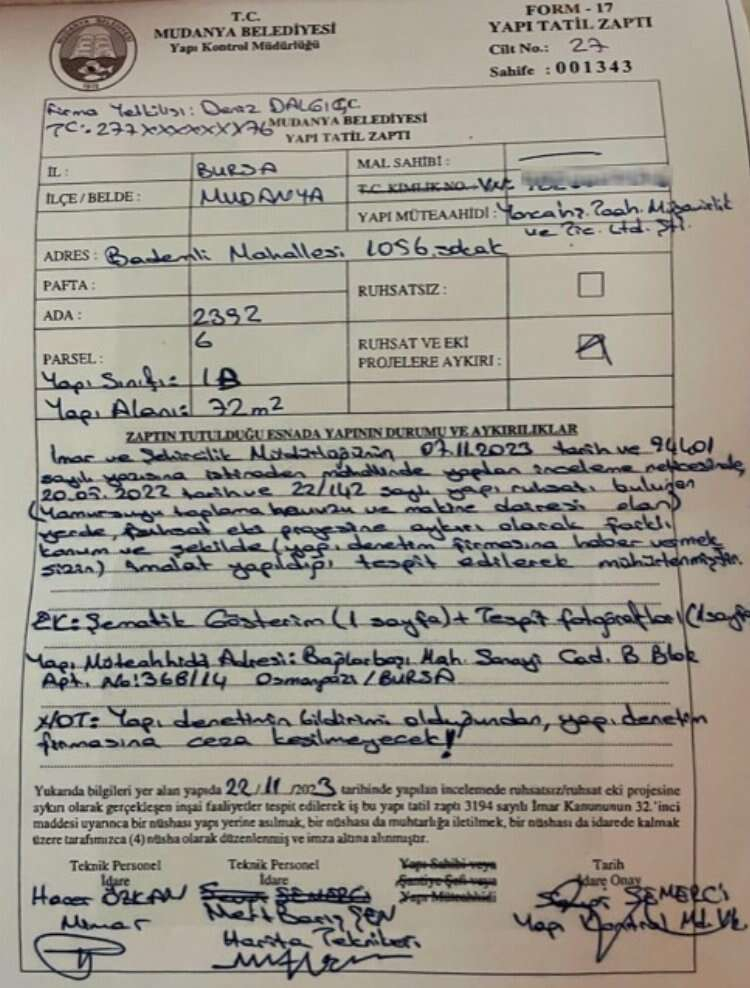 MUDANYA BELEDİYESİ
1872
T.C.
MUDANYA BELEDİYESİ
Yapı Kontrol Müdürlüğü
FORM - 17
YAPI TATİL ZAPTI
Cilt No.: 27
Sahife : 001343
Firma Yetkilisi: Deniz DALGIÇ
TC: 277XXXXXXXX76
T.C.
MUDANYA BELEDİYESİ
YAPI TATİL ZAPTI
İL : BURSA
MAL SAHİBİ : —
İLÇE / BELDE : MUDANYA
T.C. KİMLİK NO.
YAPI MÜTEAAHİDİ : Taah. Müşavirlik
ve Tic. Ltd. Şti.
ADRES : Bademli Mahallesi 1056. sokak
PAFTA :
RUHSATSIZ :
ADA : 2392
PARSEL : 6
RUHSAT VE EKİ
PROJELERE AYKIRI :
Yapı Sınıfı: 1B
Yapı Alanı: 72 m2
ZAPTIN TUTULDUĞU ESNADA YAPININ DURUMU VE AYKIRILIKLAR
İmar ve Şehircilik Müdürlüğünün 07.11.2023 tarih ve 94401
sayılı yazısına istinaden mahallinde yapılan inceleme neticesinde,
20.05.2022 tarih ve 22/142 sayılı yapı ruhsatı bulunan
(Yağmursuyu toplama havuzu ve makine dairesi olan)
yerde, ruhsat eki projesine aykırı olarak farklı
konum ve şekilde (yapı denetim firmasına haber vermek
sizin) imalat yapıldığı tespit edilerek mühürlenmiştir.
EK: Şematik Gösterim (1 sayfa) + Tespit fotoğrafları (1 sayfa
Yapı Müteahhidi Adresi: Bağlarbaşı Mah. Sanayi Cad. B Blok
Apt. No: 368/14 Osmangazi / BURSA
NOT: Yapı denetimin bildirimi olduğundan, yapı denetim
firmasına ceza kesilmeyecek!
Yukarıda bilgileri yer alan yapıda 22/11/2023 tarihinde yapılan incelemede ruhsatsız/ruhsat eki projesine
aykırı olarak gerçekleşen inşai faaliyetler tespit edilerek iş bu yapı tatil zaptı 3194 sayılı İmar Kanununun 32.'inci
maddesi uyarınca bir nüshası yapı yerine asılmak, bir nüshası da muhtarlığa iletilmek, bir nüshası da idarede kalmak
üzere tarafımızca (4) nüsha olarak düzenlenmiş ve imza altına alınmıştır.
Teknik Personel
İdare
Hacer ÖZKAN
Mimar
Teknik Personel
İdare
SEMERCİ
Mert Barış ŞEN
Harita Teknikeri
Yapı Sahibi veya
Şantiye Şefi veya
Yapı Müteahhidi
Tarih
İdare Onay
SEMERCİ
Yapı Kontrol Md. Vk.